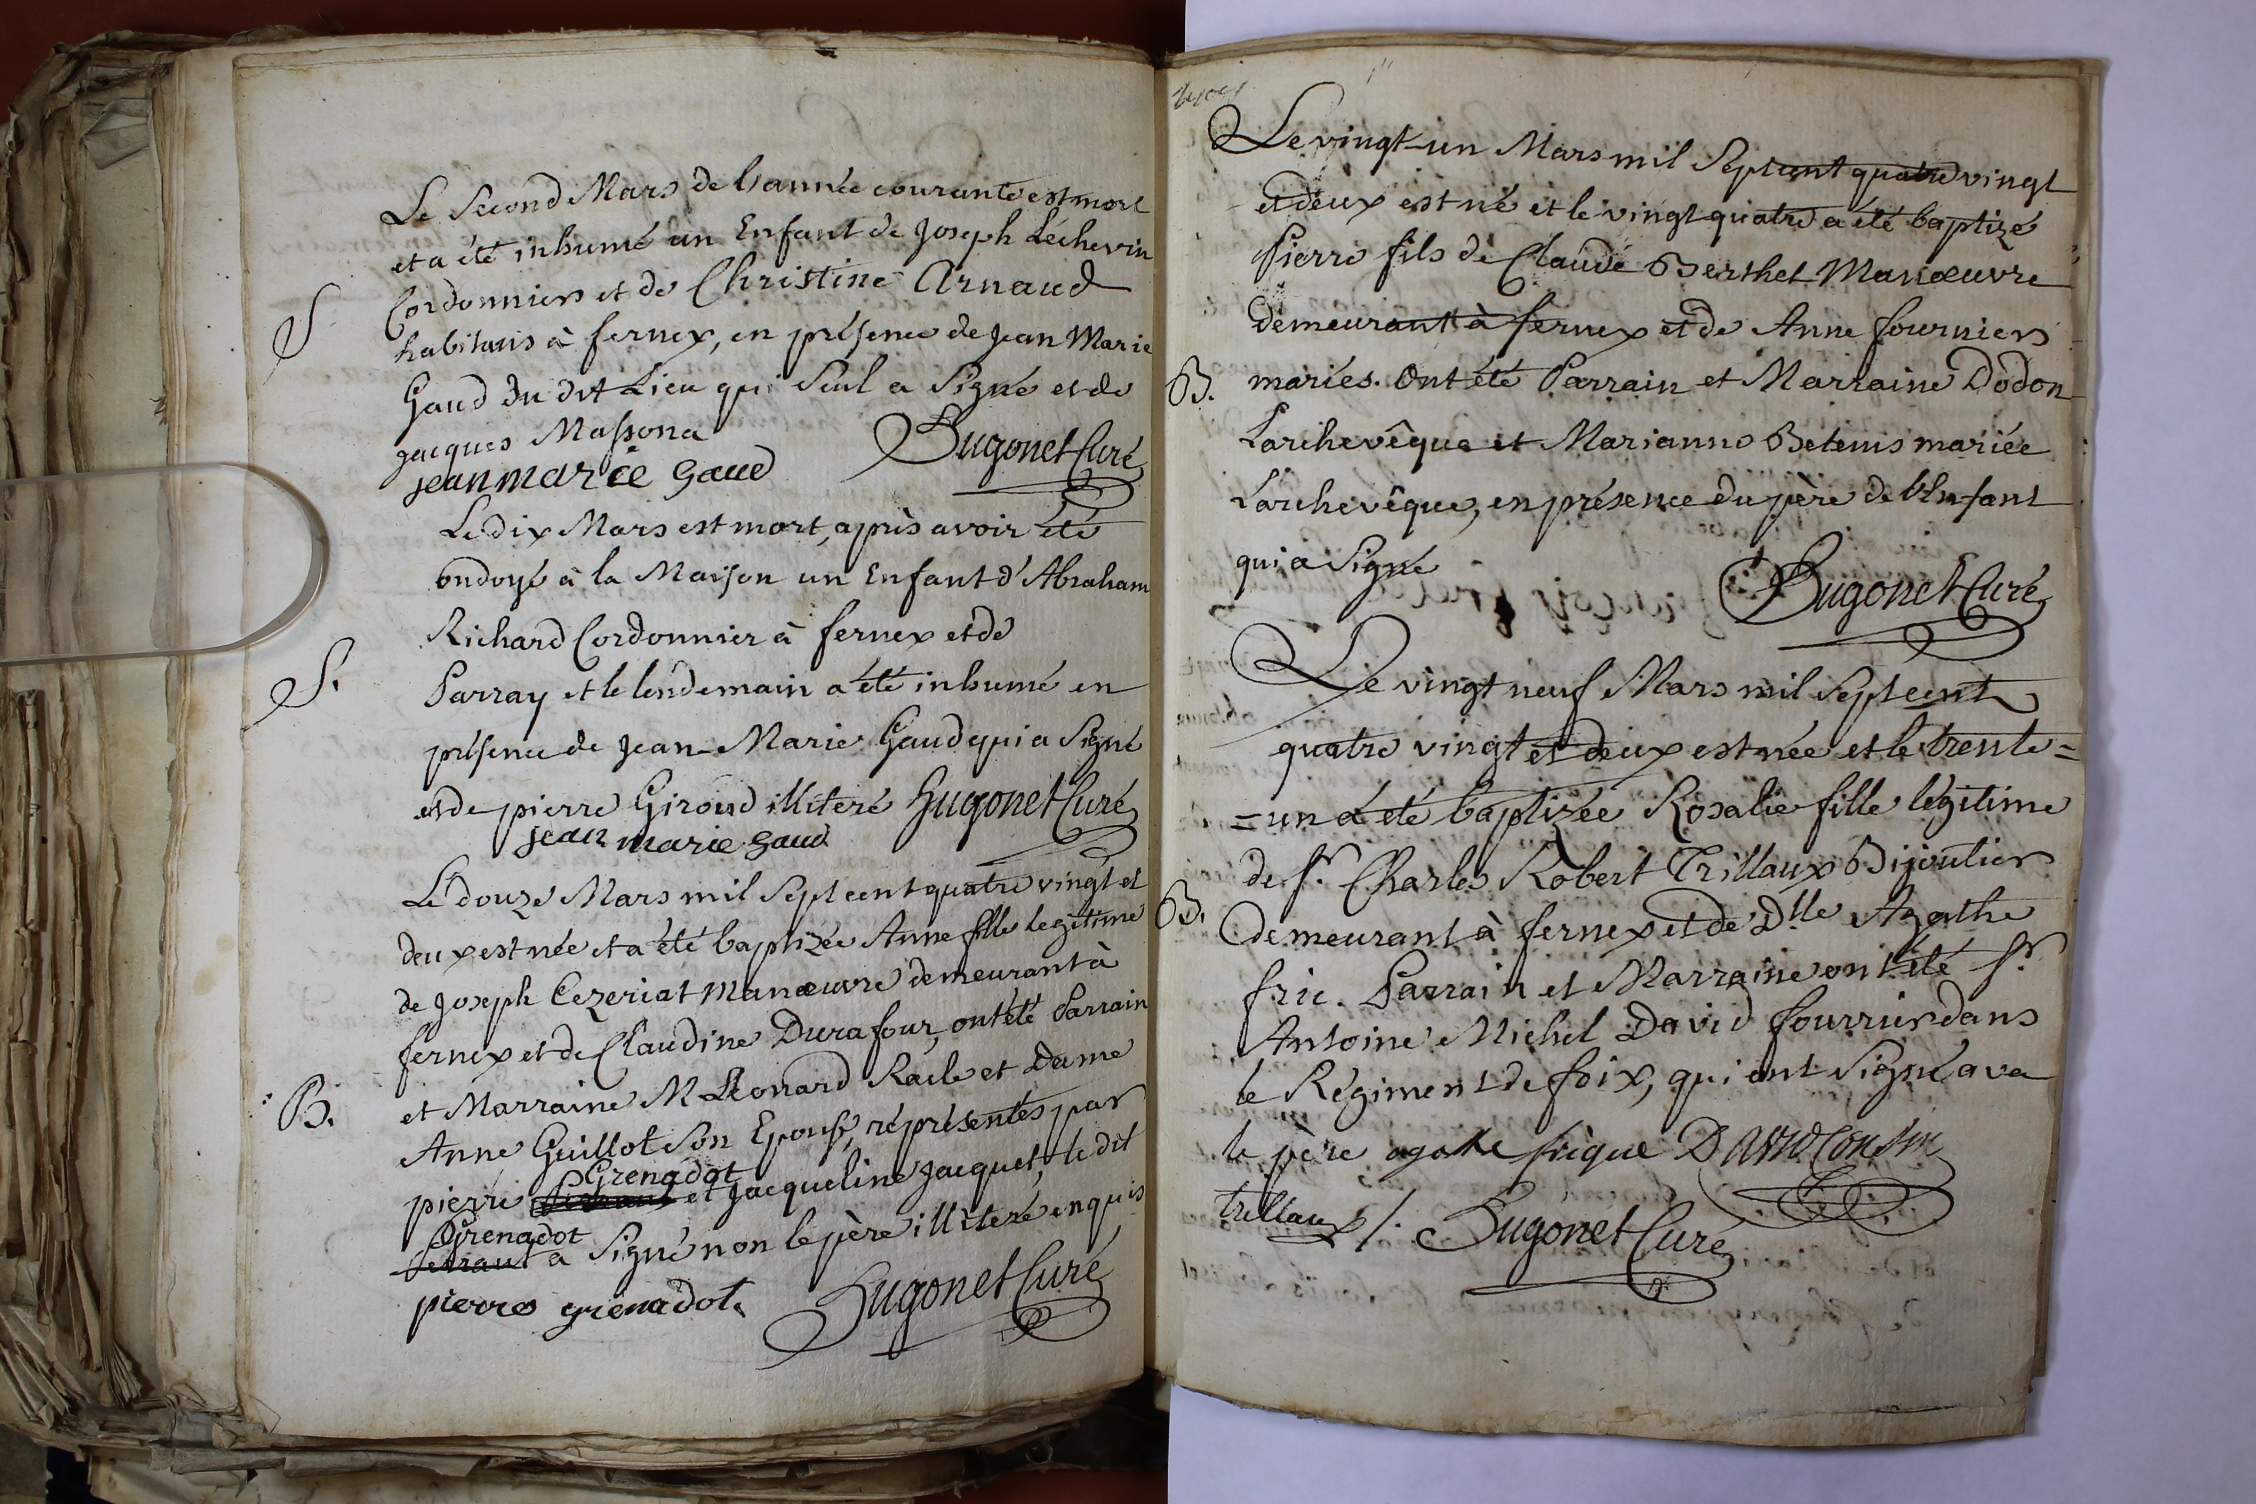 Le Second Mars de l'année courante est mort
et a été inhumé un Enfant de Joseph Léchevin
Cordonnier et de Christine Arnaud
S
habitans à fernex, en présence de Jean Marie
Gaud du dit Lieu qui Seul a Signé et de
jacques Massona
Hugonet Curé
jean marie gaud
Le dix Mars est mort, après avoir été
ondoyé à la Maison un Enfant d'Abraham
Richard Cordonnier à fernex et de
S.
Parray et le lendemain a été inhumé en
présence de Jean-Marie Gaud qui a Signé
et de pierre Giroud illiteré Hugonet Curé
jean marie gaud
Le douze Mars mil Sept cent quatre vingt et
deux est née et a été baptizée Anne fille legitime
de Joseph Cezeriat Manœuvre demeurant à
fernex et de Claudine Durafour, ont été Parrain
B.
et Marraine M. Léonard Racle et Dame
Anne Guillot Son Epouse, réprésentés par
Grenadot
pierre et Jacqueline Jacquet, le dit
Grenadot
a Signé non le père illiteré enquis
pierre grenadot
Hugonet Curé
Le vingt-un Mars mil Sept cent quatre vingt
et deux est né et le vingt quatre a été baptizé
Pierre fils de Claude Berthet Manœuvre
demeurant à fernex et de Anne fournier
B.
mariés. Ont été Parrain et Marraine Dodon
Larchevêque et Marianne Betems mariée
Larchevêque, en présence du père de l'Enfant
qui a Signé
Hugonet Curé
Le vingt neuf Mars mil Sept cent
quatre vingt et deux est née et le trente=
=un a été baptizée Rosalie fille légitime
de Sr. Charles Robert Trillaux Bijoutier
B.
demeurant à fernex et de Dlle Agathe
fric. Parrain et Marraine ont été Sr.
Antoine Michel David fourrier dans
le Régiment de foix, qui ont Signé ava
le père agathe fricque David Cousin
trillaux /. Hugonet Curé